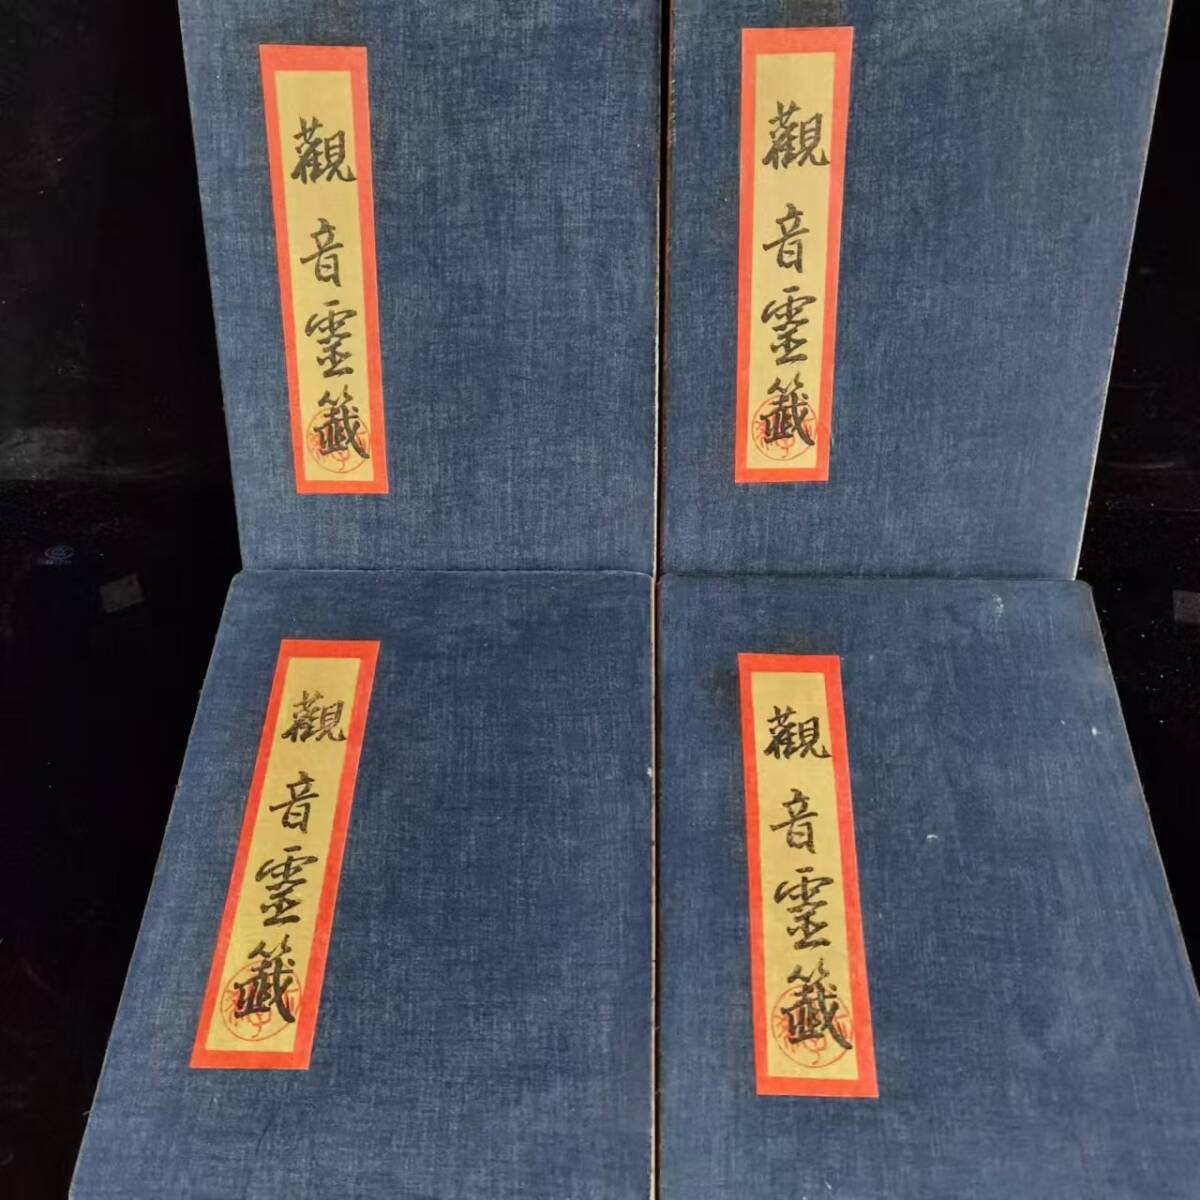 觀音靈籤
觀音靈籤
觀音靈籤
觀音靈籤